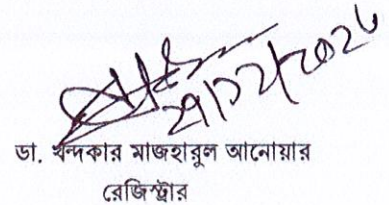 ডা. খন্দকার মাজহারুল আনোয়ার
রেজিস্ট্রার